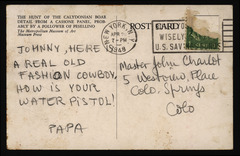 THE HUNT OF THE CALYDONIAN BOAR
DETAIL FROM A CASSONE PANEL, PROB-
ABLY BY A FOLLOWER OF PESELLINO
The Metropolitan Museum of Art
POST CARD
NEW YORK, N.Y.
APR
2-PM
1948
WISELY
U.S. SAVI
JOHNNY, HERE
A REAL OLD
FASHION COWBOY,
HOW IS YOUR
WATER PISTOL!
PAPA
Master John Charlot
5 Western Place
Colo. Springs
Colo